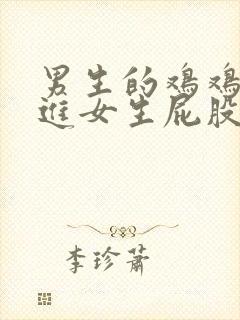 男生的鸡鸡
进女生屁股
李珍萧